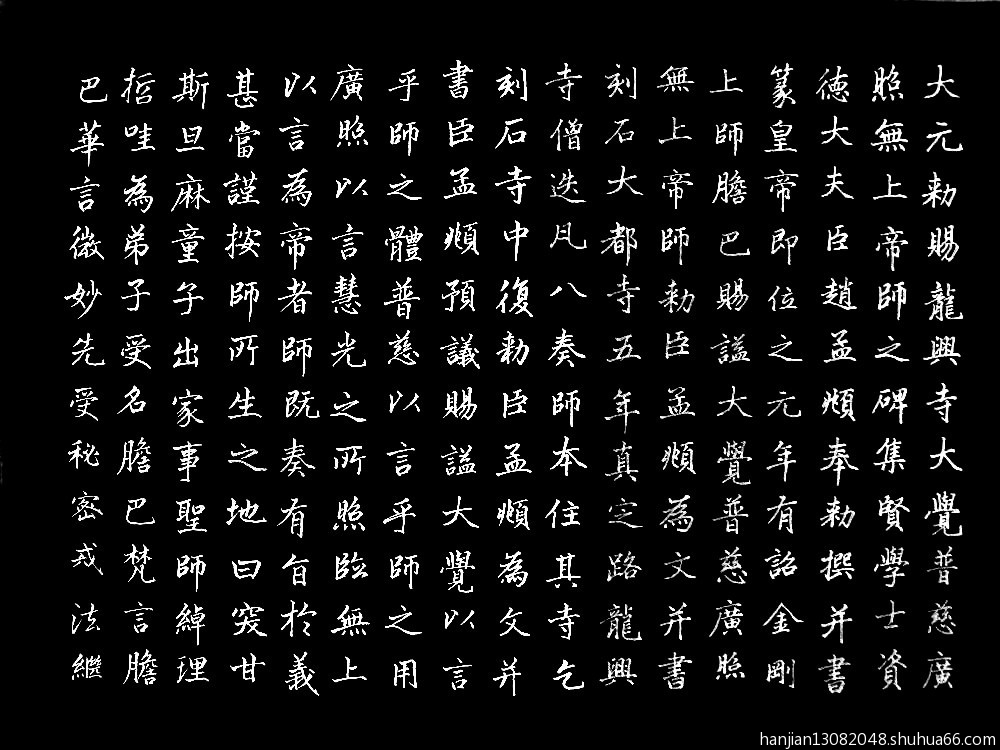 大元勅賜龍興寺大覺普慈廣
照無上帝師之碑集賢學士資
德大夫臣趙孟頫奉勅撰并書
篆皇帝即位之元年有詔金剛
上師膽巴賜謚大覺普慈廣照
無上帝師勅臣孟頫為文并書
刻石大都寺五年真定路龍興
寺僧迭凡八奏師本住其寺乞
刻石寺中復勅臣孟頫為文并
書臣孟頫預議賜謚大覺以言
乎師之體普慈以言乎師之用
廣照以言慧光之所照臨無上
以言為帝者師既奏有旨於義
甚當謹按師所生之地曰突甘
斯旦麻童子出家事聖師綽理
哲哇為弟子受名膽巴梵言膽
巴華言微妙先受秘密戒法繼
hanjian13082048.shuhua66.com